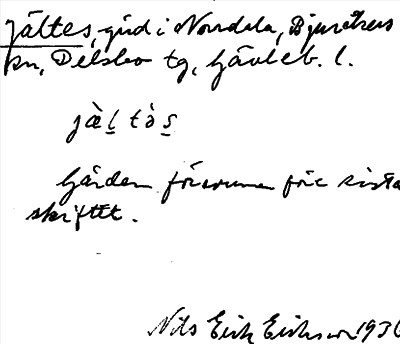 Jältes, gård i Norrdela, Bjuråkers
sn, Delsbo tg, Gävleb. l.
jæ̀l̲tòs̲
Gården försvunnen före sista
skiftet.
Nils Erik Eriksson 1936